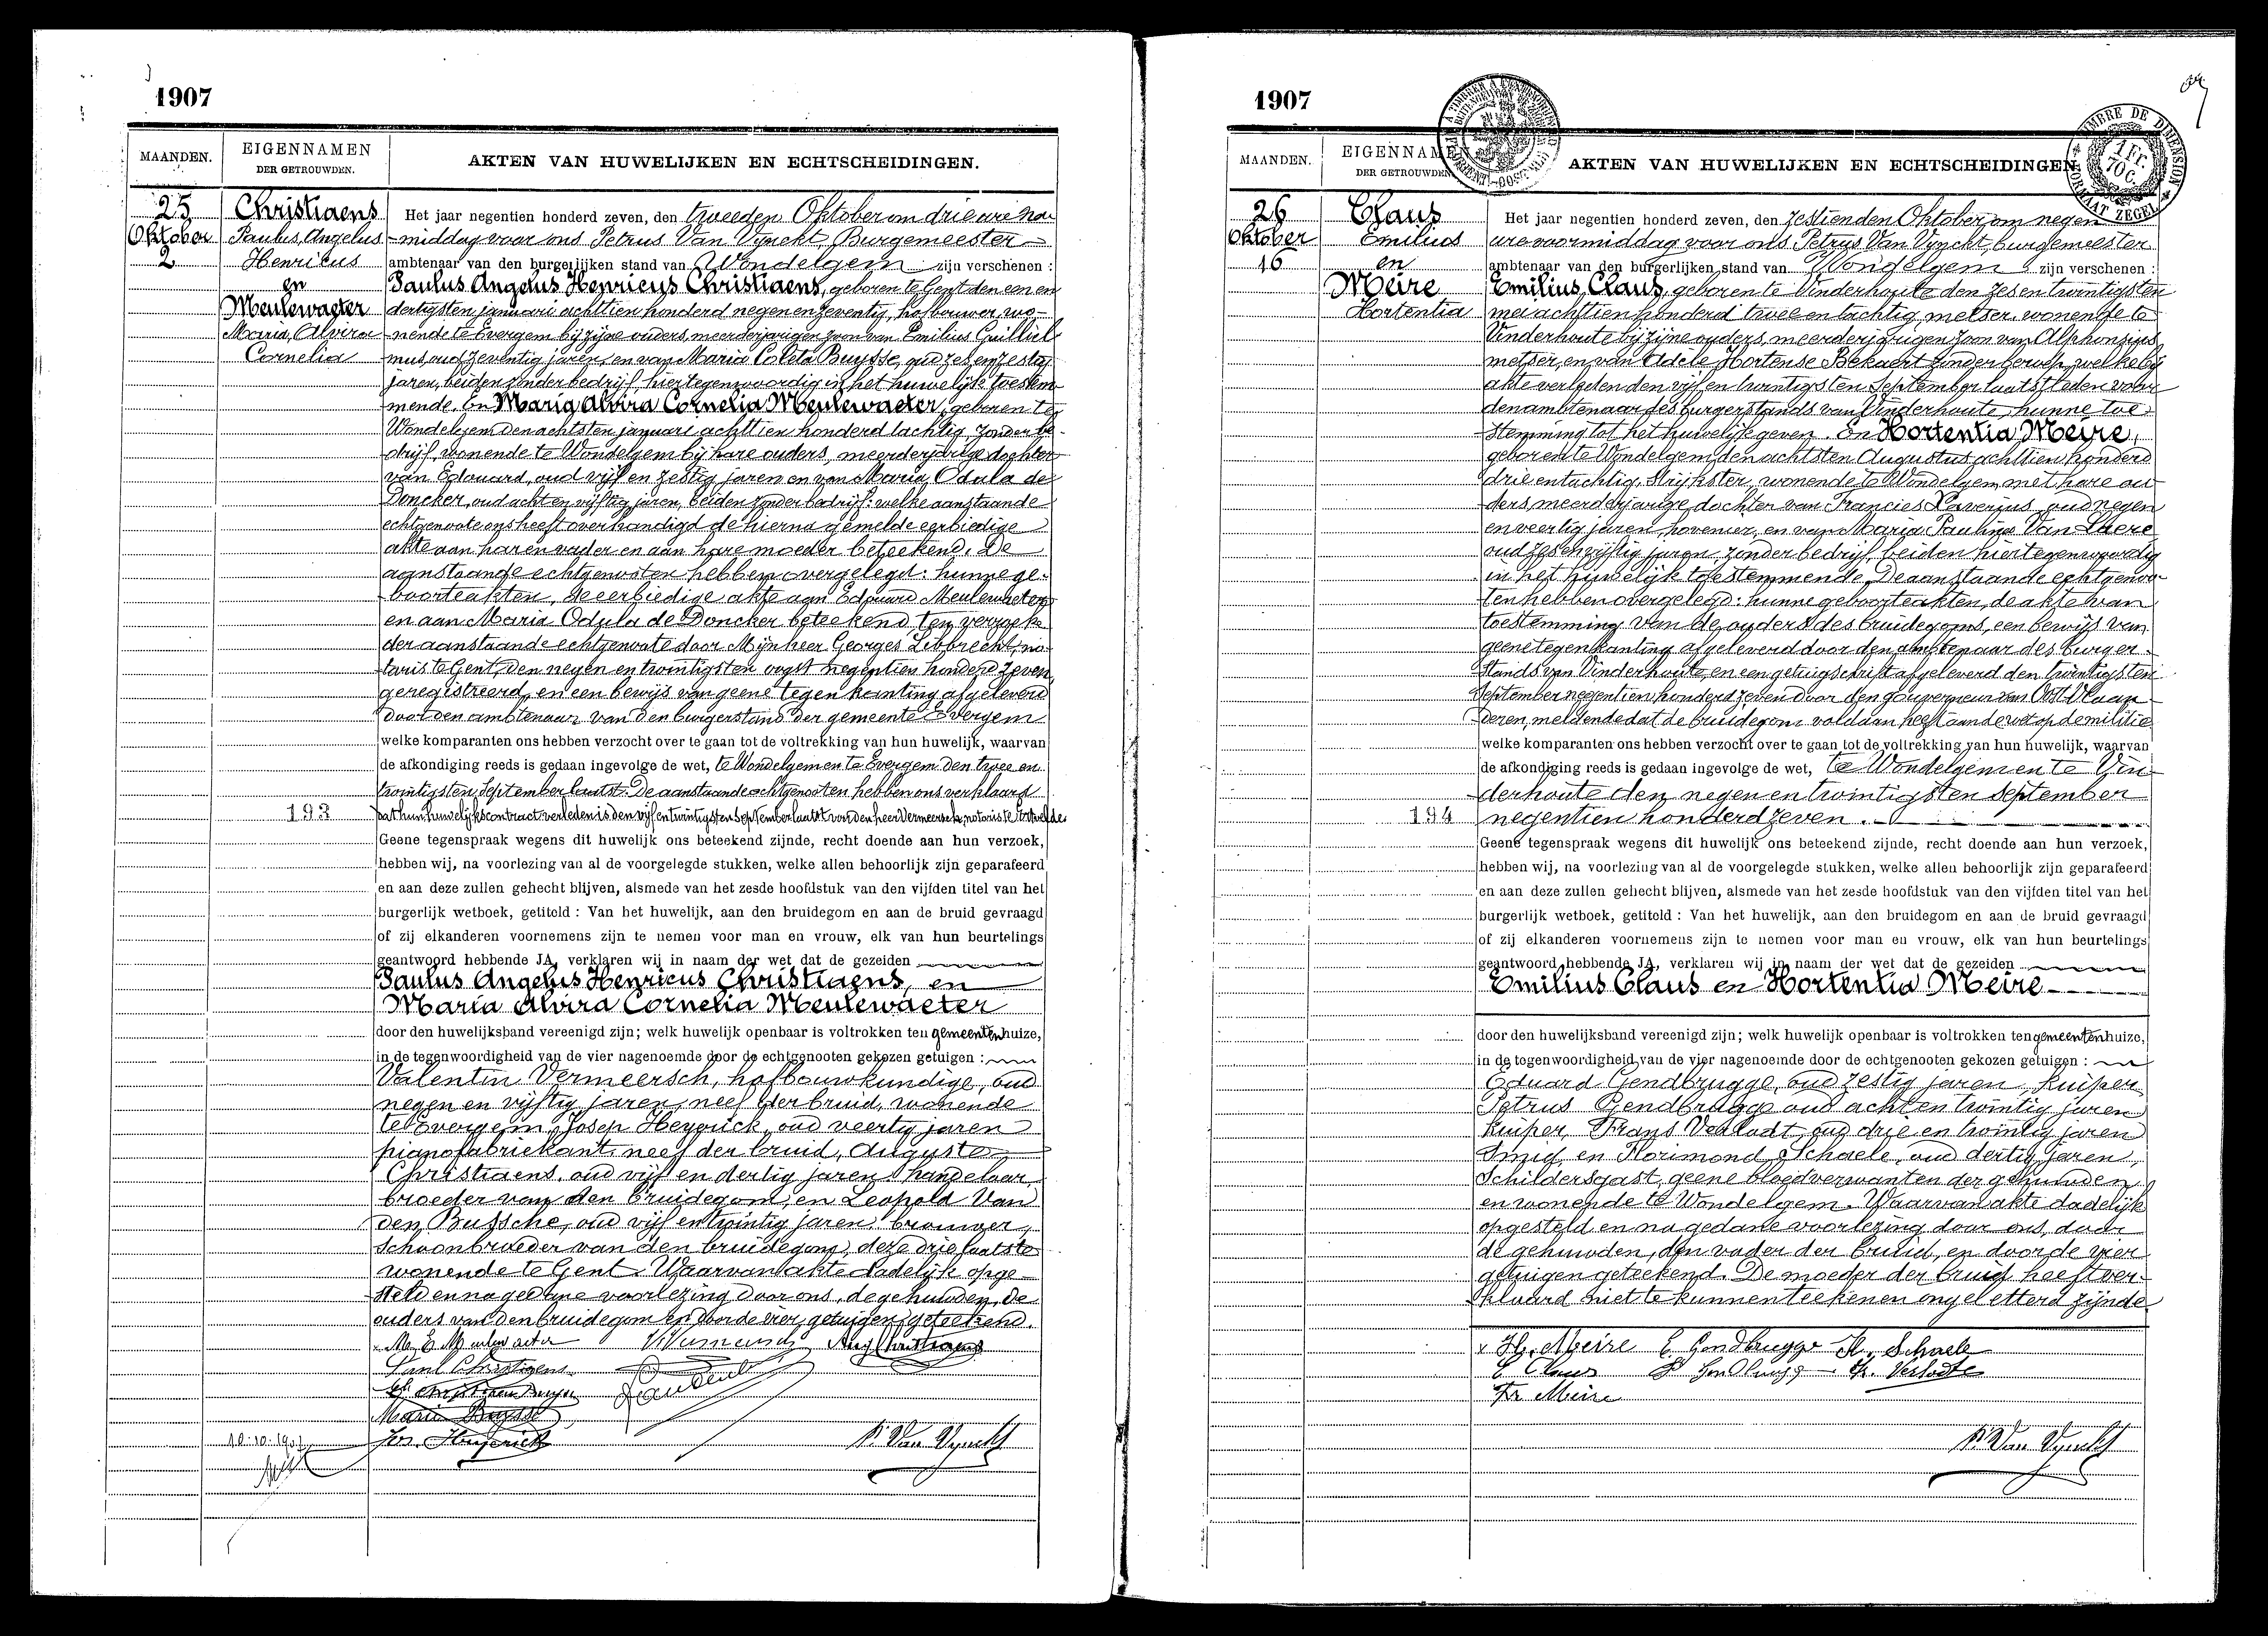 1907
MAANDEN.
EIGENNAMEN
DER GETROUWDEN.
AKTEN VAN HUWELIJKEN EN ECHTSCHEIDINGEN.
25
Oktober
2
Christiaens
Paulus Angelus
Henricus
en
Meulewaeter
Maria Alvira
Cornelia
193
Het jaar negentien honderd zeven, den tweeden Oktober om drie ure na-
middag voor ons Petrus Van Vynckt, Burgemeester
ambtenaar van den burgerlijken stand van Wondelgem zijn verschenen :
Paulus Angelus Henricus Christiaens, geboren te Gent den een en
dertigsten januari achttien honderd negen en zeventig, hofbouwer, wo-
nende te Evergem bij zijne ouders, meerderjarigen zoon van Emilius Guilliel-
mus, oud zeventig jaren, en van Maria Coleta Buysse, oud zes en zestig
jaren, beiden zonder bedrijf, hier tegenwoordig in het huwelijk toestem-
mende. En Maria Alvira Cornelia Meulewaeter, geboren te
Wondelgem den achtsten januari achttien honderd tachtig, zonder be-
drijf, wonende te Wondelgem bij hare ouders, meerderjarige dochter
van Edouard, oud vijf en zestig jaren en van Maria Odula de
Doncker, oud acht en vijftig jaren, beiden zonder bedrijf: welke aanstaande
echtgenoote ons heeft overhandigd de hierna gemelde eerbiedige
akte aan haren vader en aan hare moeder beteekend. De
aanstaande echtgenooten hebben overgelegd: hunne ge-
boorteakten, de eerbiedige akte aan Edouard Meulewaeter
en aan Maria Odula de Doncker beteekend, ten verzoeke
der aanstaande echtgenoote door Mijnheer Georges Libbrecht, no-
taris te Gent, den negen en twintigsten oogst negentien honderd zeven,
geregistreerd, en een bewijs van geene tegenkanting afgeleverd
door den ambtenaar van den burgerstand der gemeente Evergem
welke komparanten ons hebben verzocht over te gaan tot de voltrekking van hun huwelijk, waarvan
de afkondiging reeds is gedaan ingevolge de wet, te Wondelgem en te Evergem den twee en
twintigsten September laatst. De aanstaande echtgenooten hebben ons verklaard
dat hun huwelijkscontract verleden is den vijf en twintigsten September laatst voor den heer Vermeersch, notaris te
Geene tegenspraak wegens dit huwelijk ons beteekend zijnde, recht doende aan hun verzoek,
hebben wij, na voorlezing van al de voorgelegde stukken, welke allen behoorlijk zijn geparafeerd
en aan deze zullen gehecht blijven, alsmede van het zesde hoofdstuk van den vijfden titel van het
burgerlijk wetboek, getiteld : Van het huwelijk, aan den bruidegom en aan de bruid gevraagd
of zij elkanderen voornemens zijn te nemen voor man en vrouw, elk van hun beurtelings
geantwoord hebbende JA, verklaren wij in naam der wet dat de gezeiden
Paulus Angelus Henricus Christiaens, en
Maria Alvira Cornelia Meulewaeter
door den huwelijksband vereenigd zijn; welk huwelijk openbaar is voltrokken ten gemeentenhuize,
in de tegenwoordigheid van de vier nagenoemde door de echtgenooten gekozen getuigen :
Valentin Vermeersch, hofbouwkundige, oud
negen en vijftig jaren, neef der bruid, wonende
te Evergem, Josep Heyerick, oud veertig jaren
pianofabriekant, neef der bruid, Auguste
Christiaens, oud vijf en dertig jaren, handelaar
broeder van den bruidegom, en Leopold Van
den Bussche, oud vijf en twintig jaren, brouwer,
schoonbroeder van den bruidegom, deze drie laatste
wonende te Gent. Waarvan akte dadelijk opge-
steld en na gedane voorlezing door ons, de gehuwden, de
ouders van den bruidegom en door de vier getuigen geteekend.
Aug Christiaens
Paul Christiaens
Marie Buysse
Jos. Heyerick
P. Van Vynckt
10.10.1907
1907
TIMBRE DE DIMENSION
1 Fr.
70 c.
FORMAAT ZEGEL
MAANDEN.
EIGENNAMEN
DER GETROUWDEN
AKTEN VAN HUWELIJKEN EN ECHTSCHEIDINGEN
26
Oktober
16
Claus
Emilius
en
Meire
Hortentia
194
Het jaar negentien honderd zeven, den zestienden Oktober om negen
ure voormiddag voor ons Petrus Van Vynckt, burgemeester
ambtenaar van den burgerlijken stand van Wondelgem zijn verschenen :
Emilius Claus, geboren te Vinderhoute den zes en twintigsten
mei achttien honderd twee en tachtig, metser, wonende te
Vinderhoute bij zijne ouders, meerderjarigen zoon van Alphonsius
metser, en van Adele Hortense Bekaert zonder beroep, welke bij
akte verleden den vijf en twintigsten September laatstleden voor
den ambtenaar des burgerstands van Vinderhoute, hunne toe-
stemming tot het huwelijk geven. En Hortentia Meire,
geboren te Wondelgem, den achtsten Augustus achttien honderd
drie en tachtig, strijkster, wonende te Wondelgem met hare ou-
ders, meerderjarige dochter van Francies Xaverius, oud negen
en veertig jaren, hovenier, en van Maria Paulina Van Laere
oud zes en vijftig jaren, zonder bedrijf, beiden hier tegenwoordig
in het huwelijk toestemmende. De aanstaande echtgenoo-
ten hebben overgelegd: hunne geboorteakten, de akte van
toestemming van de ouders des bruidegoms, een bewijs van
geene tegenkanting afgeleverd door den ambtenaar des burger-
stands van Vinderhoute, en een getuigschrift afgeleverd den twintigsten
September negentien honderd zeven door den gouverneur van Oost-Vlaan-
deren, meldende dat de bruidegom voldaan heeft aan de wet op de militie
welke komparanten ons hebben verzocht over te gaan tot de voltrekking van hun huwelijk, waarvan
de afkondiging reeds is gedaan ingevolge de wet, te Wondelgem en te Vin-
derhoute den negen en twintigsten September
negentien honderd zeven.
Geene tegenspraak wegens dit huwelijk ons beteekend zijnde, recht doende aan hun verzoek,
hebben wij, na voorlezing van al de voorgelegde stukken, welke allen behoorlijk zijn geparafeerd
en aan deze zullen gehecht blijven, alsmede van het zesde hoofdstuk van den vijfden titel van het
burgerlijk wetboek, getiteld : Van het huwelijk, aan den bruidegom en aan de bruid gevraagd
of zij elkanderen voornemens zijn te nemen voor man en vrouw, elk van hun beurtelings
geantwoord hebbende JA, verklaren wij in naam der wet dat de gezeiden
Emilius Claus en Hortentia Meire
door den huwelijksband vereenigd zijn; welk huwelijk openbaar is voltrokken ten gemeentenhuize,
in de tegenwoordigheid van de vier nagenoemde door de echtgenooten gekozen getuigen :
Eduard Gendbrugge, oud zestig jaren, kuiper
Petrus Gendbrugge oud acht en twintig jaren
kuiper, Frans Verlodt, oud drie en twintig jaren
smid, en Florimond Schaele, oud dertig jaren,
schildersgast, geene bloedverwanten der gehuwden
en wonende te Wondelgem. Waarvan akte dadelijk
opgesteld en na gedane voorlezing door ons, door
de gehuwden, den vader der bruid, en door de vier
getuigen geteekend. De moeder der bruid heeft ver-
klaard niet te kunnen teekenen ongeletterd zijnde
H. Meire E. Gendbrugge Fl. Schaele
E Claus P Gendbrugge Fr. Verlodt
Fr Meire
P. Van Vynckt